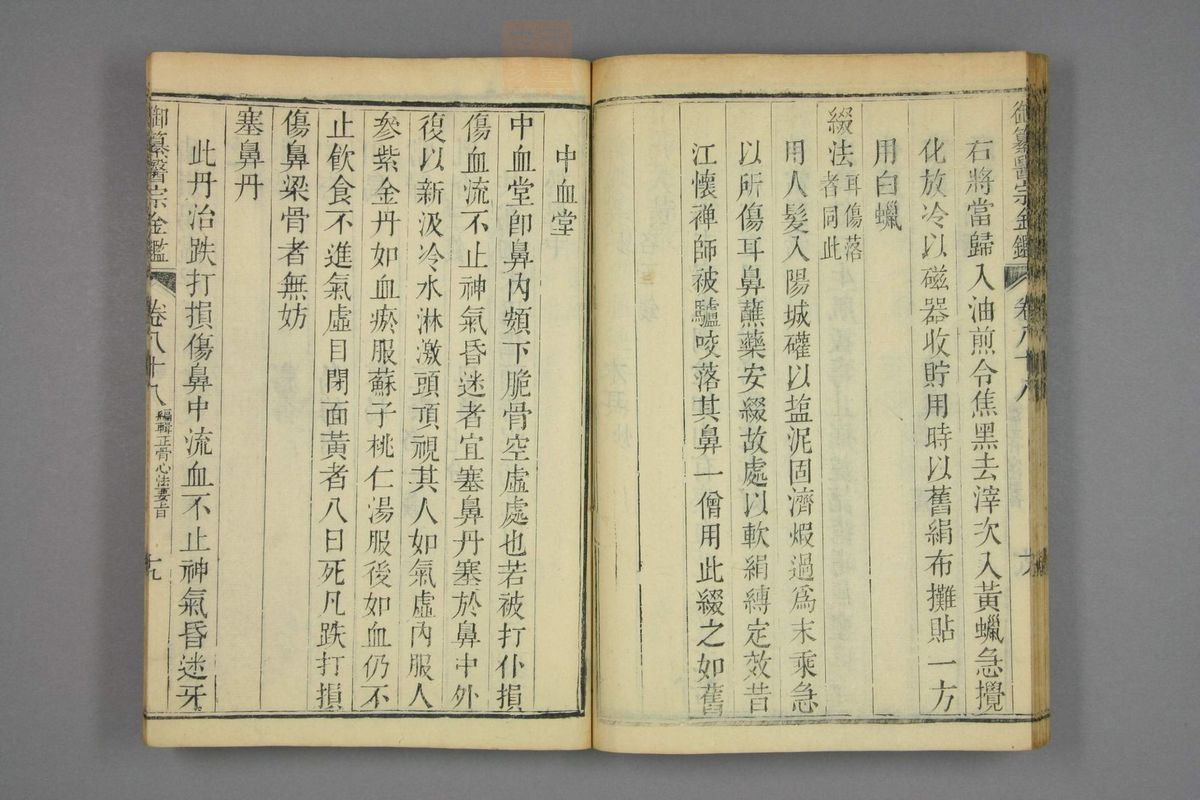 御纂醫宗金鑑 卷八十八
右將當歸入油煎令焦黑去滓次入黃蠟急攪
化放冷以磁器收貯用時以舊絹布攤貼一方
用白蠟
綴法耳傷落者同此
用人髮入陽城礶以塩泥固濟煆過為末乘急
以所傷耳鼻蘸藥安綴故處以軟絹縛定效昔
江懷禅師被驢咬落其鼻一僧用此綴之如舊
中血堂
中血堂卽鼻內頞下脆骨空虛處也若被打仆損
傷血流不止神氣昏迷者宜塞鼻丹塞於鼻中外
復以新汲冷水淋激頭頂視其人如氣虛內服人
參紫金丹如血瘀服蘇子桃仁湯服後如血仍不
止飲食不進氣虛目閉面黃者八日死凡跌打損
傷鼻梁骨者無妨
塞鼻丹
此丹治跌打損傷鼻中流血不止神氣昏迷牙
御纂醫宗金鑑 卷八十八 編輯正骨心法要旨 十九